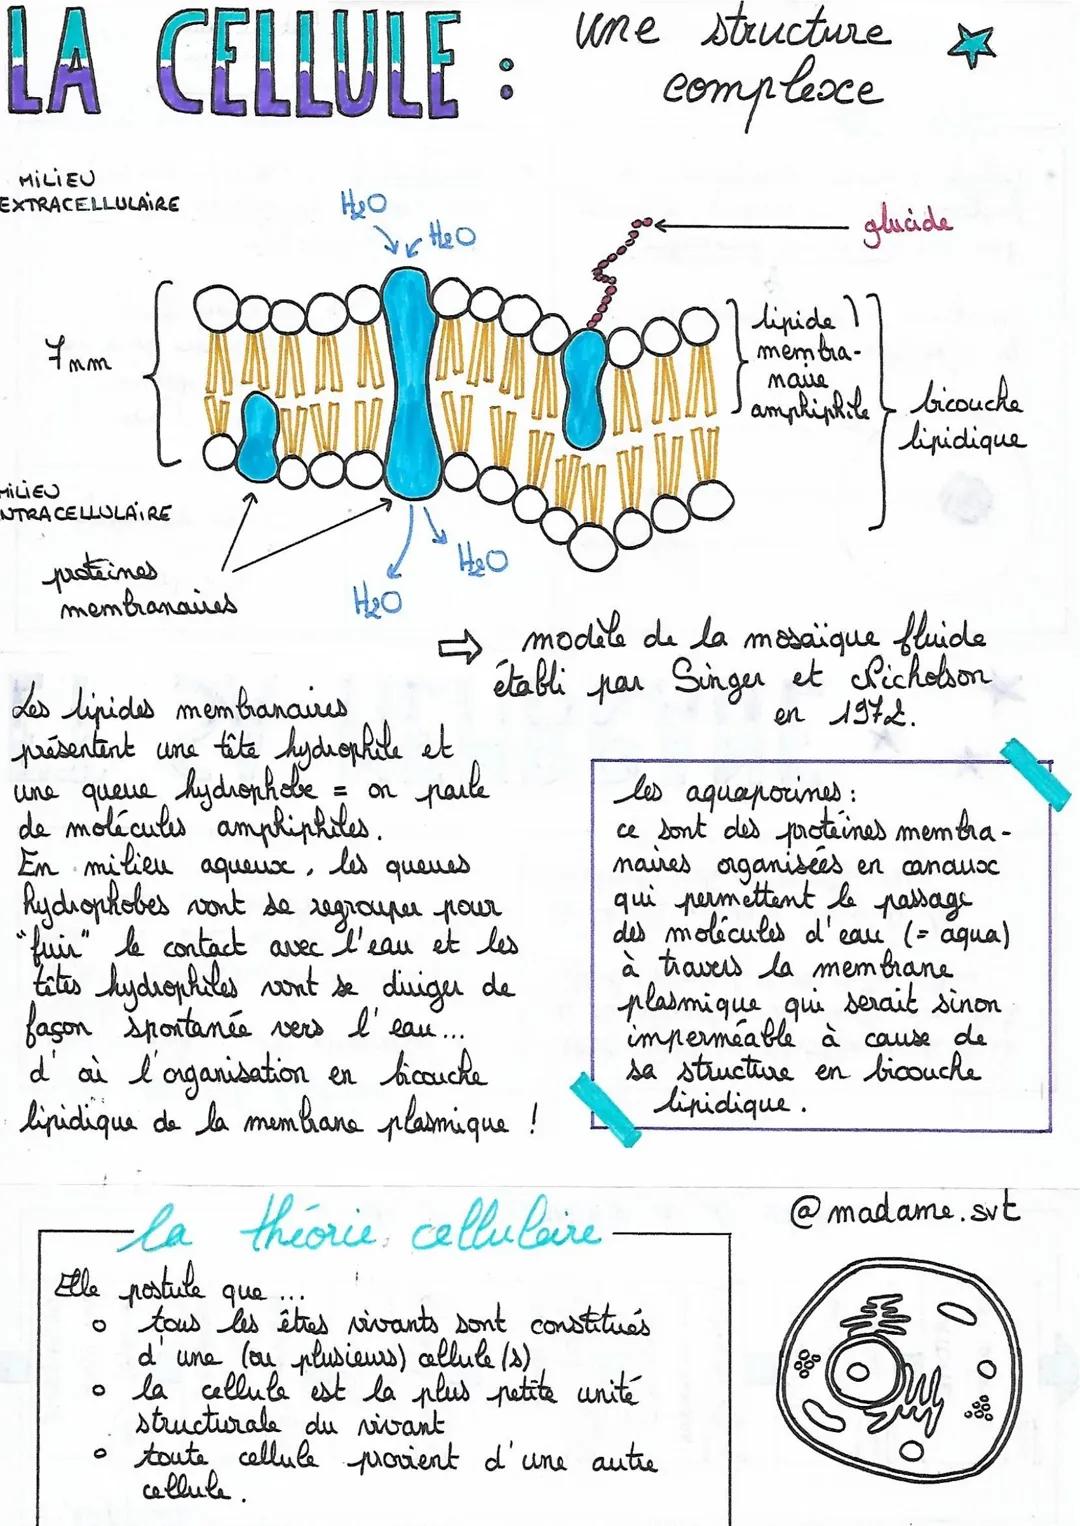 LA CELLULE : une structure
complexe
MILIEU
EXTRACELLULAIRE
H2O
H2O
glucide
7 nm
lipide
membra-
naire
amphiphile
bicouche
lipidique
MILIEU
INTRACELLULAIRE
protéines
membranaires
H2O
H2O
⇨ modèle de la mosaïque fluide
établi par Singer et Nicholson
en 1972.
Les lipides membranaires
présentent une tête hydrophile et
une queue hydrophobe = on parle
de molécules amphiphiles.
En milieu aqueux, les queues
hydrophobes vont se regrouper pour
"fuir" le contact avec l'eau et les
têtes hydrophiles vont se diriger de
façon spontanée vers l'eau...
d'où l'organisation en bicouche
lipidique de la membrane plasmique !
les aquaporines :
ce sont des protéines membra-
naires organisées en canaux
qui permettent le passage
des molécules d'eau (= aqua)
à travers la membrane
plasmique qui serait sinon
imperméable à cause de
sa structure en bicouche
lipidique.
@madame.svt
la théorie cellulaire
Elle postule que ...
o tous les êtres vivants sont constitués
d'une (ou plusieurs) cellule(s)
o la cellule est la plus petite unité
structurale du vivant
o toute cellule provient d'une autre
cellule.